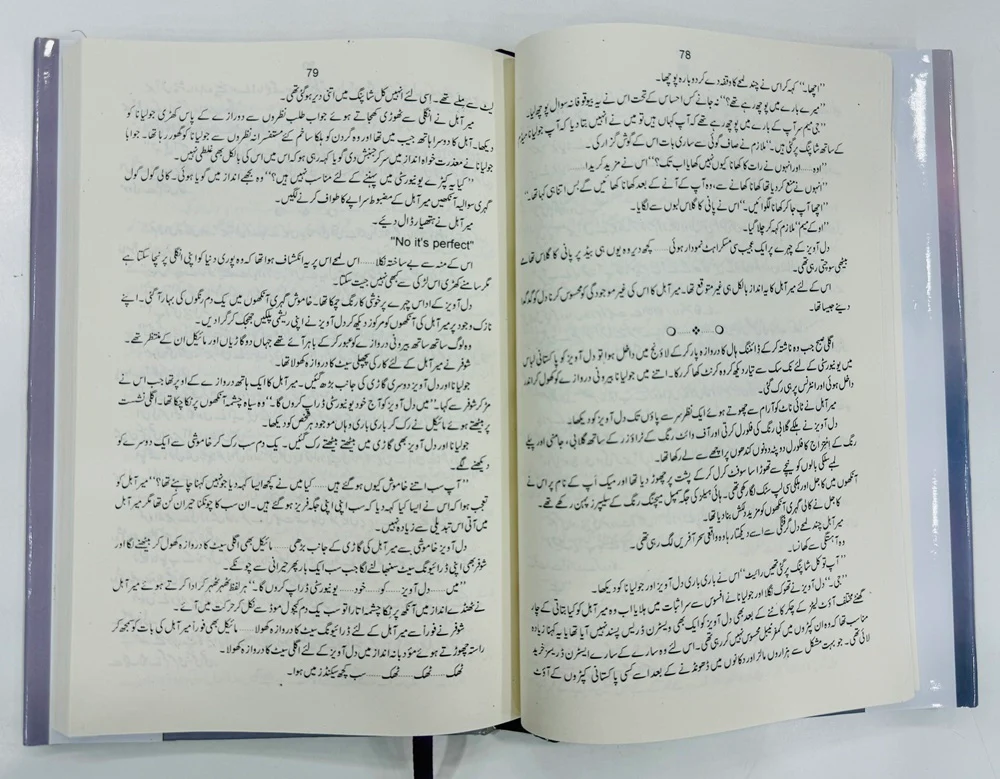 78
"اچھا۔" کہہ کر اس نے چند لمحے کا وقفہ دے کر دوبارہ پوچھا۔
"میرے بارے میں پوچھ رہے تھے؟" نہ جانے کس احساس کے تحت اس نے یہ بیوقوفانہ سوال پوچھ لیا۔
"جی میم سر آپ کے بارے میں پوچھ رہے تھے کہ آپ کہاں ہیں تو میں نے انہیں بتا دیا کہ آپ جولیانا میم
کے ساتھ شاپنگ پر گئی ہیں۔" ملازم نے صاف گوئی سے ساری بات اس کے گوش گزار کی۔
"اوہ......اور انہوں نے رات کا کھانا کیوں نہیں کھایا اب تک؟" اس نے مزید کریدا۔
"انہوں نے منع کر دیا تھا کھانا کھانے سے، وہ آپ کے آنے کے بعد کھانا کھائیں گے بس اتنا ہی کہا تھا۔"
"اچھا آپ جا کر کھانا لگوائیں۔" اس نے پانی کا گلاس لبوں سے لگایا۔
"اوکے میم" ملازم کہہ کر چلا گیا۔
دل آویز کے چہرے پر ایک عجیب سی مسکراہٹ نمودار ہوئی......کچھ دیر وہ یوں ہی بیڈ پر پانی کا گلاس تھامے
بیٹھی سوچتی رہی تھی۔
اس کے لئے میر آبل کا یہ انداز بالکل ہی غیر متوقع تھا۔ میر آبل کا اس کی غیر موجودگی کو محسوس کرنا دل کو گدگدا
دینے جیسا تھا۔
اگلی صبح جب وہ ناشتہ کر کے ڈائننگ ہال کا دروازہ پار کر کے لاؤنج میں داخل ہوا تو دل آویز کو پاکستانی لباس
میں یونیورسٹی کے لئے تک سک سے تیار دیکھ کر وہ کرنٹ کھا کر رکا۔ اتنے میں جولیانا بیرونی دروازے کو کھول کر اندر
داخل ہوئی اور انٹرنس پر ہی رک گئی۔
میر آبل نے ٹائی ناٹ کو آرام سے چھوتے ہوئے ایک نظر سر سے پاؤں تک دل آویز کو دیکھا۔
دل آویز نے ہلکے گلابی رنگ کی فلورل کرتی اور آف وائٹ رنگ کے ٹراؤزر کے ساتھ گلابی، جامنی اور پیلے
رنگ کے امتزاج کا فلورل دوپٹہ دونوں کندھوں پر اچھے سے لے رکھا تھا۔
لمبے سلکی بالوں کو نیچے سے تھوڑا سا سوفٹ کرل کر کے پشت پر چھوڑ دیا تھا اور میک اپ کے نام پر اس نے
آنکھوں میں کاجل اور ہلکی سی لپ سٹک لگا رکھی تھی۔ ہائی ہیلز کی جگہ سمپل میچنگ رنگ کے سلیپرز پہن رکھے تھے۔
کاجل نے کالی گہری آنکھوں کو مزید دلکش بنا دیا تھا۔
میر آبل چند لمحے دل گرفتگی سے اسے دیکھتا رہا وہ واقعی سحر آفریں لگ رہی تھی۔
وہ آہستگی سے کھانسا۔
"آپ تو کل شاپنگ پر گئی تھیں رائیٹ" اس نے باری باری دل آویز اور جولیانا کو دیکھا۔
"جی۔" دل آویز نے تھوک نگلا اور جولیانا نے افسوس سے سر اثبات میں ہلایا اب وہ میر آبل کو کیا بتاتی کے چار
گھنٹے مختلف آؤٹ لیٹز کے چکر کاٹنے کے بعد بھی دل آویز کو ایک بھی ویسٹرن ڈریس پسند نہیں آیا تھا یا یہ کہنا زیادہ
مناسب تھا کہ وہ ان کپڑوں میں کمفرٹیبل محسوس نہیں کر رہی تھی۔ اس لئے وہ سارے کے سارے ایسٹرن ڈریسز خرید
لائی تھی۔ جو بہت مشکل سے ہزاروں مالز اور دکانوں میں ڈھونڈنے کے بعد اسے کسی پاکستانی کپڑوں کے آؤٹ
79
لیٹ سے ملے تھے۔ اسی لئے انہیں کل شاپنگ میں اتنی دیر ہو گئی تھی۔
میر آبل نے انگلی سے ٹھوڑی کھجاتے ہوئے جواب طلب نظروں سے دور ازے کے پاس کھڑی جولیانا کو
دیکھا۔ آبل کا دوسرا ہاتھ جیب میں تھا اور وہ گردن کو ہلکا سا خم کئے مستفسرانہ نظروں سے جولیانا کو گھور رہا تھا۔ جواباً
جولیانا نے معذرت خواہ انداز میں سر کو جنبش دی گویا کہہ رہی ہو کہ اس میں اس کی بالکل بھی غلطی نہیں۔
"کیا یہ کپڑے یونیورسٹی میں پہننے کے لئے مناسب نہیں ہیں؟" وہ بجھے انداز میں گویا ہوئی۔ کالی گول گول
گہری سوالیہ آنکھیں میر آبل کے مضبوط سراپے کا طواف کرنے لگیں۔
میر آبل نے ہتھیار ڈال دیئے۔
"No it's perfect"
اس کے منہ سے بے ساختہ نکلا......اس لمحے اس پر یہ انکشاف ہوا تھا کہ وہ پوری دنیا کو اپنی انگلی پر نچا سکتا ہے
مگر سامنے کھڑی اس لڑکی سے کبھی نہیں جیت سکتا۔
دل آویز کے اداس چہرے پر خوشی کا رنگ چمکا تھا۔ خاموش گہری آنکھوں میں یک دم رنگوں کی بہار آ گئی۔ اپنے
نازک وجود پر میر آبل کی آنکھوں کو مرکوز دیکھ کر دل آویز نے اپنی ریشمی پلکیں جھپک کر گرا دیں۔
وہ لوگ ساتھ ساتھ بیرونی دروازے کو عبور کر کے باہر آئے تھے جہاں دو گاڑیاں اور مائیکل ان کے منتظر تھے۔
شوفر نے میر آبل کے لئے کار کی پچھلی سیٹ کا دروازہ کھولا تھا۔
جولیانا اور دل آویز دوسری گاڑی کی جانب بڑھ گئیں۔ میر آبل کا ایک ہاتھ دروازے کے اوپر تھا جب اس نے
مڑ کر شوفر سے کہا۔ "میں دل آویز کو آج خود یونیورسٹی ڈراپ کروں گا۔" وہ سیاہ چشمہ آنکھوں پر ٹکا چکا تھا۔ اگلی نشست
پر بیٹھتے ہوئے مائیکل نے رک کر باری باری وہاں موجود ہر شخص کو دیکھا۔
جولیانا اور دل آویز بھی گاڑی میں بیٹھتے بیٹھتے رک گئیں۔ یک دم سب رک کر خاموشی سے ایک دوسرے کو
دیکھنے لگے۔
"آپ سب اتنے خاموش کیوں ہو گئے ہیں......کیا میں نے کچھ ایسا کہہ دیا جو نہیں کہنا چاہئے تھا؟" میر آبل کو
تعجب ہوا کہ اس نے ایسا کیا کہہ دیا کہ سب اپنی اپنی جگہ فریز ہو گئے ہیں۔ ان سب کا چونکنا حیران کن تھا مگر میر آبل
میں آتی اس تبدیلی سے زیادہ نہیں۔
دل آویز خاموشی سے میر آبل کی گاڑی کے جانب بڑھی......مائیکل بھی اگلی سیٹ کا دروازہ کھول کر بیٹھنے لگا اور
شوفر بھی اپنی ڈرائیونگ سیٹ سنبھالنے لگا جب سب ایک بار پھر حیرانی سے چونکے۔
"میں......دل آویز......کو......خود......یونیورسٹی ڈراپ کروں گا۔" ہر لفظ ٹھہر ٹھہر کر ادا کرتے ہوئے میر آبل
نے ٹھنڈے انداز میں آنکھ پر ٹکا چشمہ اتارا تو سب یک دم سٹیچو موڈ سے نکل کر حرکت میں آئے۔
شوفر نے فوراً سے میر آبل کے لئے ڈرائیونگ سیٹ کا دروازہ کھولا......مائیکل بھی فوراً میر آبل کی بات کو سمجھ کر
راستہ چھوڑتے ہوئے مؤدبانہ انداز میں دل آویز کے لئے اگلی سیٹ کا دروازہ کھولا۔
ٹھک......ٹھک......ٹھک......سب کچھ سیکنڈز میں ہوا۔